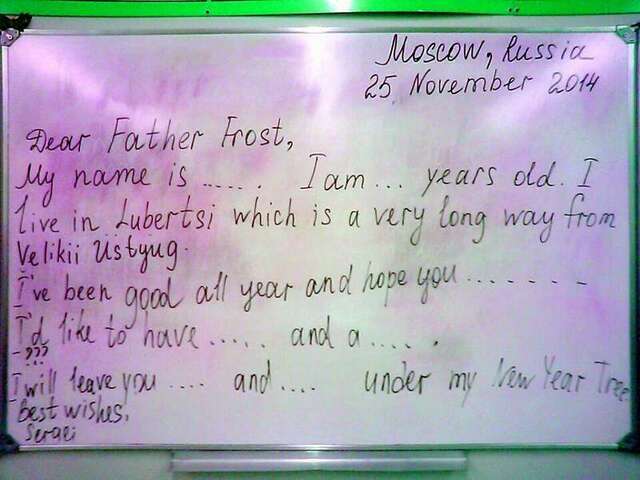 Moscow, Russia
25 November 2014
Dear Father Frost,
My name is ...... I am ... years old. I
live in Lubertsi which is a very long way from
Velikii Ustyug.
I've been good all year and hope you .......
I'd like to have ..... and a .....
- ???
I will leave you .... and .... under my New Year Tree
Best wishes,
Sergei